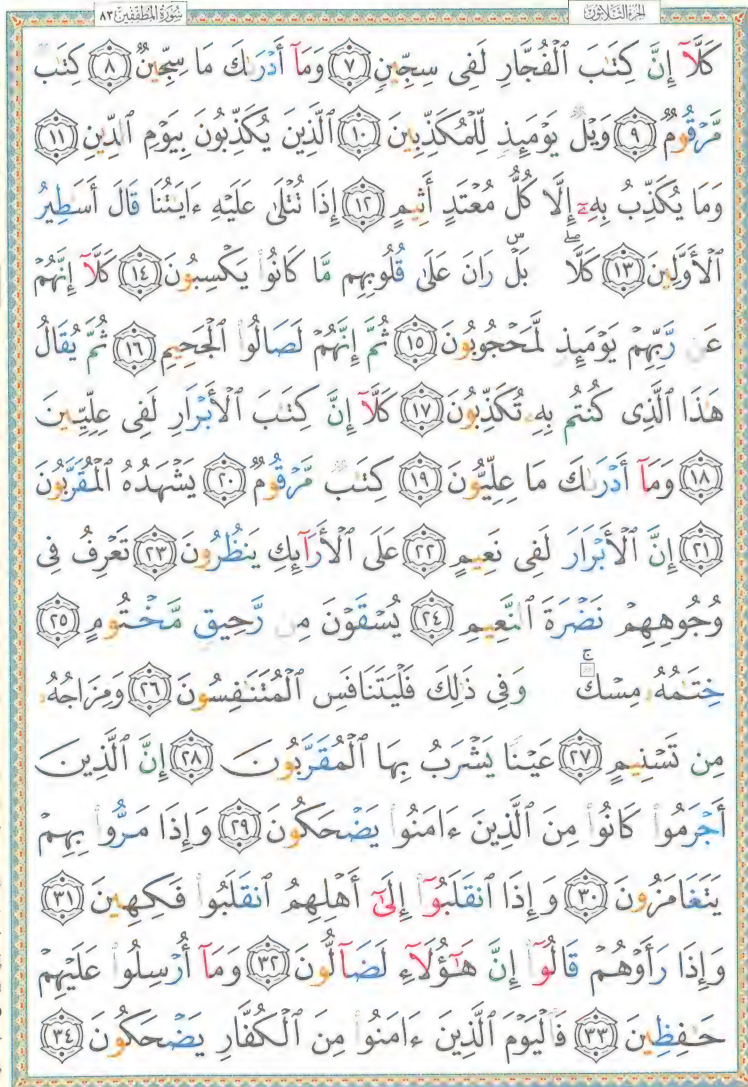 سُورَةُ المُطَفِّفِينَ ٨٣ الجزء الثلاثون
كَلَّآ إِنَّ كِتَٰبَ ٱلْفُجَّارِ لَفِى سِجِّينٍ ٧ وَمَآ أَدْرَىٰكَ مَا سِجِّينٌ ٨ كِتَٰبٌ
مَّرْقُومٌ ٩ وَيْلٌ يَوْمَئِذٍ لِّلْمُكَذِّبِينَ ١٠ ٱلَّذِينَ يُكَذِّبُونَ بِيَوْمِ ٱلدِّينِ ١١
وَمَا يُكَذِّبُ بِهِۦٓ إِلَّا كُلُّ مُعْتَدٍ أَثِيمٍ ١٢ إِذَا تُتْلَىٰ عَلَيْهِ ءَايَٰتُنَا قَالَ أَسَٰطِيرُ
ٱلْأَوَّلِينَ ١٣ كَلَّا ۖ بَلْ ۜ رَانَ عَلَىٰ قُلُوبِهِم مَّا كَانُوا۟ يَكْسِبُونَ ١٤ كَلَّآ إِنَّهُمْ
عَن رَّبِّهِمْ يَوْمَئِذٍ لَّمَحْجُوبُونَ ١٥ ثُمَّ إِنَّهُمْ لَصَالُوا۟ ٱلْجَحِيمِ ١٦ ثُمَّ يُقَالُ
هَٰذَا ٱلَّذِى كُنتُم بِهِۦ تُكَذِّبُونَ ١٧ كَلَّآ إِنَّ كِتَٰبَ ٱلْأَبْرَارِ لَفِى عِلِّيِّينَ
١٨ وَمَآ أَدْرَىٰكَ مَا عِلِّيُّونَ ١٩ كِتَٰبٌ مَّرْقُومٌ ٢٠ يَشْهَدُهُ ٱلْمُقَرَّبُونَ
٢١ إِنَّ ٱلْأَبْرَارَ لَفِى نَعِيمٍ ٢٢ عَلَى ٱلْأَرَآئِكِ يَنظُرُونَ ٢٣ تَعْرِفُ فِى
وُجُوهِهِمْ نَضْرَةَ ٱلنَّعِيمِ ٢٤ يُسْقَوْنَ مِن رَّحِيقٍ مَّخْتُومٍ ٢٥
خِتَٰمُهُۥ مِسْكٌ ۚ وَفِى ذَٰلِكَ فَلْيَتَنَافَسِ ٱلْمُتَنَٰفِسُونَ ٢٦ وَمِزَاجُهُۥ
مِن تَسْنِيمٍ ٢٧ عَيْنًا يَشْرَبُ بِهَا ٱلْمُقَرَّبُونَ ٢٨ إِنَّ ٱلَّذِينَ
أَجْرَمُوا۟ كَانُوا۟ مِنَ ٱلَّذِينَ ءَامَنُوا۟ يَضْحَكُونَ ٢٩ وَإِذَا مَرُّوا۟ بِهِمْ
يَتَغَامَزُونَ ٣٠ وَإِذَا ٱنقَلَبُوٓا۟ إِلَىٰٓ أَهْلِهِمُ ٱنقَلَبُوا۟ فَكِهِينَ ٣١
وَإِذَا رَأَوْهُمْ قَالُوٓا۟ إِنَّ هَٰٓؤُلَآءِ لَضَآلُّونَ ٣٢ وَمَآ أُرْسِلُوا۟ عَلَيْهِمْ
حَٰفِظِينَ ٣٣ فَٱلْيَوْمَ ٱلَّذِينَ ءَامَنُوا۟ مِنَ ٱلْكُفَّارِ يَضْحَكُونَ ٣٤